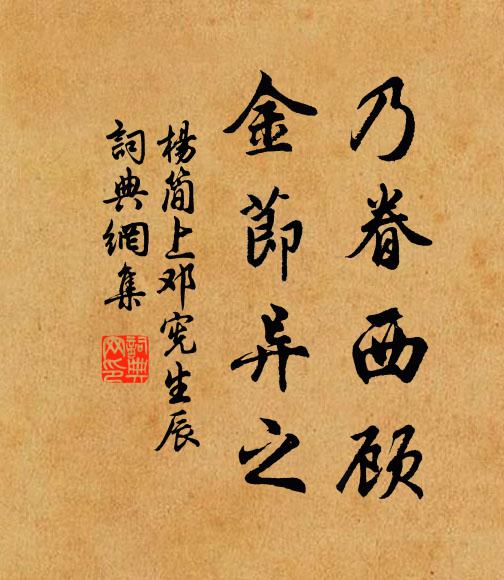 乃眷西顾
金节异之
杨简上邓宪生辰
詞典網集
詞典網印